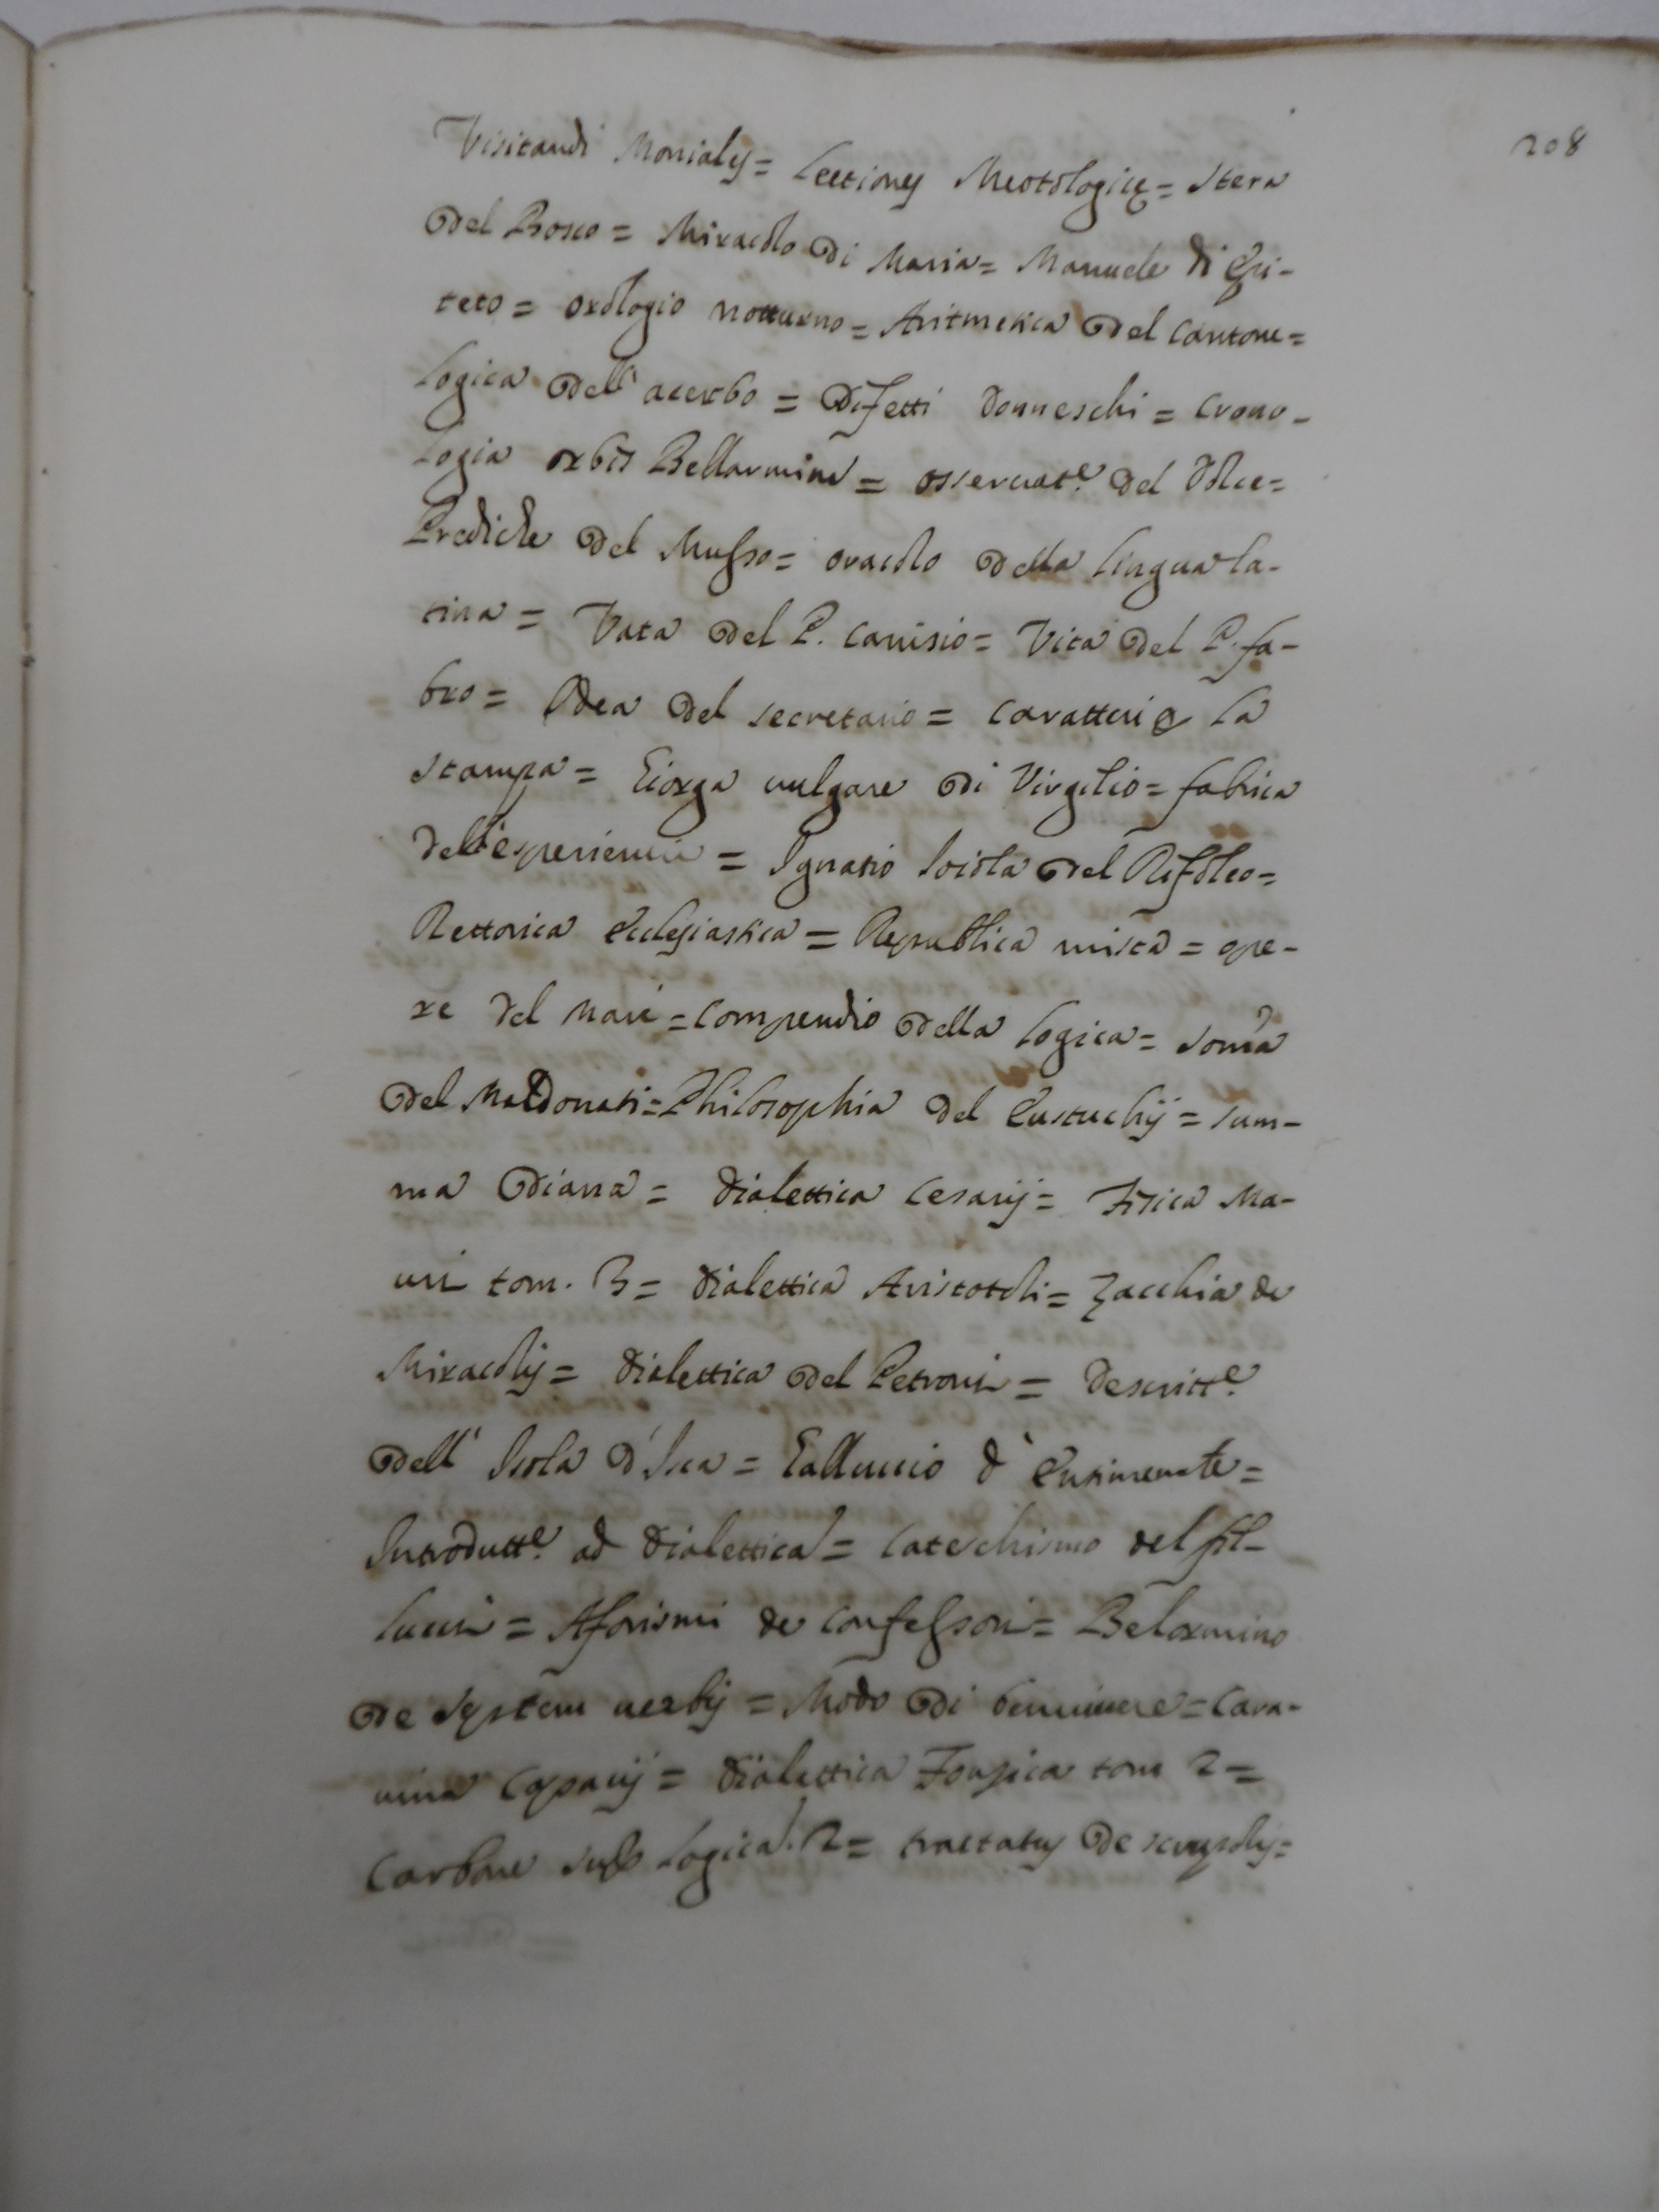 208
Visitandi Monialy = Lectiones Meotologice = stera
del Bosco = Miracolo di Maria = Manuele di Epi-
teto = orologio notturno = Aritmetica del Cantone =
Logica dell' acerbo = Difetti donneschi = Crono-
logia orbis Bellarmini = osservat.e del dolce =
Prediche del Musso = oracolo della lingua la-
tina = Vata del P. Canisio = Vita del P. fa-
bro = Idea del secretario = Caratteri La
stampa = vulgare di Virgilio = fabrica
dell'esperienue = Ignatio loiola del Rifoleo =
Rettorica ecclesiastica = Republica mista = ope-
re del Mari = Compendio della Logica = Soma
del Maldonati = Philosophia del Eustuchij = sum-
ma diana = dialettica Cesarij = Fisica Ma-
uri tom. 3 = dialettica Aristotoli = Zacchia de
Miracolij = dialettica del Petroni = descritt.e
dell' Isola d'Isca = Galluccio
Introdutt.e ad dialettica = Catechismo del fil-
lucci = Aforismi de Confessori = Belarmino
de system verbij = Modo di benuiuere = Cara-
uina = dialettica Fonsica tom 2 =
Carbone sup Logica. 2 = tractatus de scrupolij =